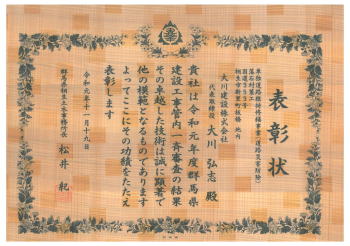 表彰状
単独道路維持修繕事業(道路災害防除)
落石対策工
国道353号
桐生市新里町板橋 地内
大川建設株式会社
代表取締役 大川 弘志 殿
貴社は令和元年度群馬県
建設工事管内一斉審査の結果
その卓越した技術は誠に顕著で
他の模範となるものであります
よってここにその功績をたたえ
表彰します
令和元年十一月十九日
群馬県桐生土木事務所長 松井 紀